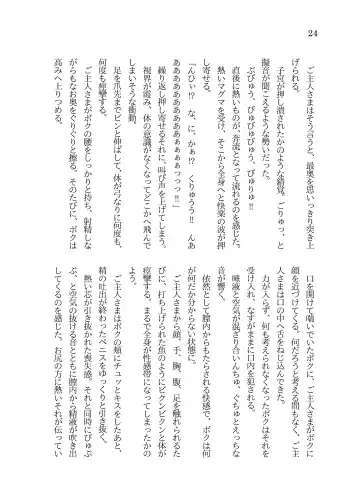 24
ご主人さまはそう言うと、最奥を思いっきり突き上
げられる。
子宮が押し潰されたかのような錯覚。ごりゅっ、と
擬音が聞こえるような勢いだった。
ぶびゅう、びゅびゅびゅう、びゅりゅ!!
直後に熱いものが、奔流となって流れるのを感じた。
熱いマグマを受け、そこから全身へと快楽の波が押
し寄せる。
「んひぃ!? な、に、かぁ!? くりゅうう!! んあ
ああああああああああぁぁぁぁっっっ!!」
繰り返し押し寄せるそれに、叫び声を上げてしまう。
視界が霞み、体の意識がなくなってどこかへ飛んで
しまいそうな衝動。
足を爪先までピンと伸ばして、体が弓なりに何度も、
何度も痙攣する。
ご主人さまがボクの腰をしっかりと持ち、射精しな
がらもなお奥をぐりぐりと擦る。そのたびに、ボクは
高みへ上りつめる。
口を開けて喘いでいたボクに、ご主人さまがボクに
顔を近づけてくる。何だろうと考える間もなく、ご主
人さまは口の中へ舌をねじ込んできた。
力が入らず、何も考えられなくなったボクはそれを
受け入れ、なすがままに口内を犯される。
唾液と空気が混ざり合いんちゅ、ぐちゅとえっちな
音が響く。
依然として膣内からもたらされる快感で、ボクは何
が何だか分からない状態に。
ご主人さまから顔、手、胸、腹、足を触れられるた
びに、打ち上げられた魚のようにビクンビクンと体が
痙攣する。まるで全身が性感帯になってしまったかの
よう。
ご主人さまはボクの頬にチュッとキスをしたあと、
精の吐出が終わったペニスをゆっくりと引き抜く。
熱い芯が引き抜かれた喪失感。それと同時にびゅぶ
ぶ、と空気の抜ける音とともに膣内から精液が吹き出
してくるのを感じた。お尻の方に熱いそれが伝ってい